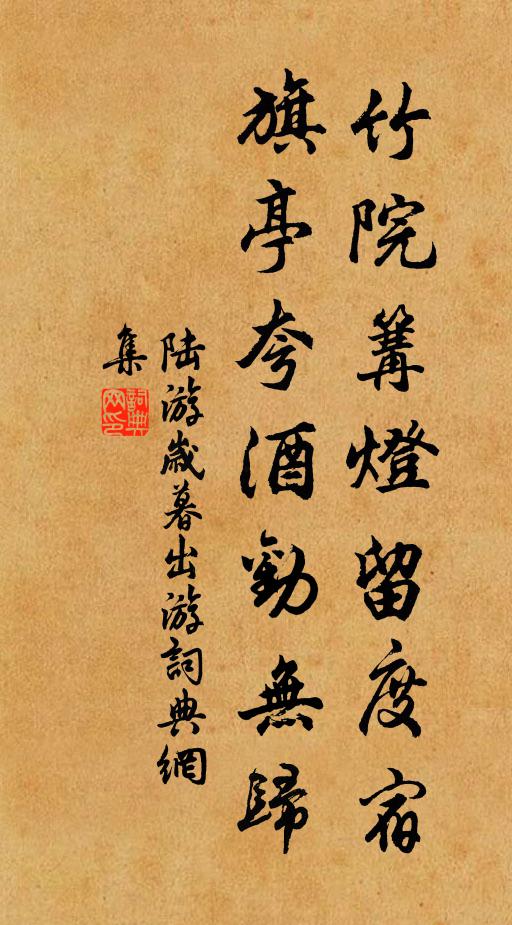 竹院篝燈留度宿
旗亭夸酒勸無歸
陆游歲暮出游詞典網
集
詞典网印